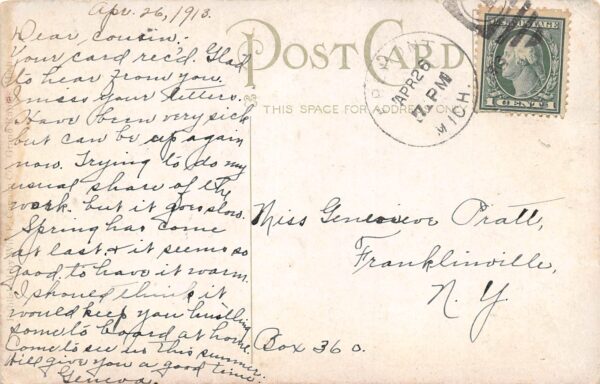 Apr. 26, 1913.
Dear cousin:-
Your card rec'd. Glad
to hear from you.
I miss your letters.
Have been very sick
but can be up again
now. Trying to do my
usual share of the
work. but it goes slow.
Spring has come
at last & it seems so
good to have it warm.
I should think it
would keep you hustling
some to board at home.
Come to see us this summer.
Will give you a good time.
Geneva.
POST CARD
THIS SPACE FOR ADDRESS ONLY
APR 26
7 PM
MICH.
U.S. POSTAGE
1 CENT 1
Miss Genevieve Pratt,
Franklinville,
N. Y.
Box 360.